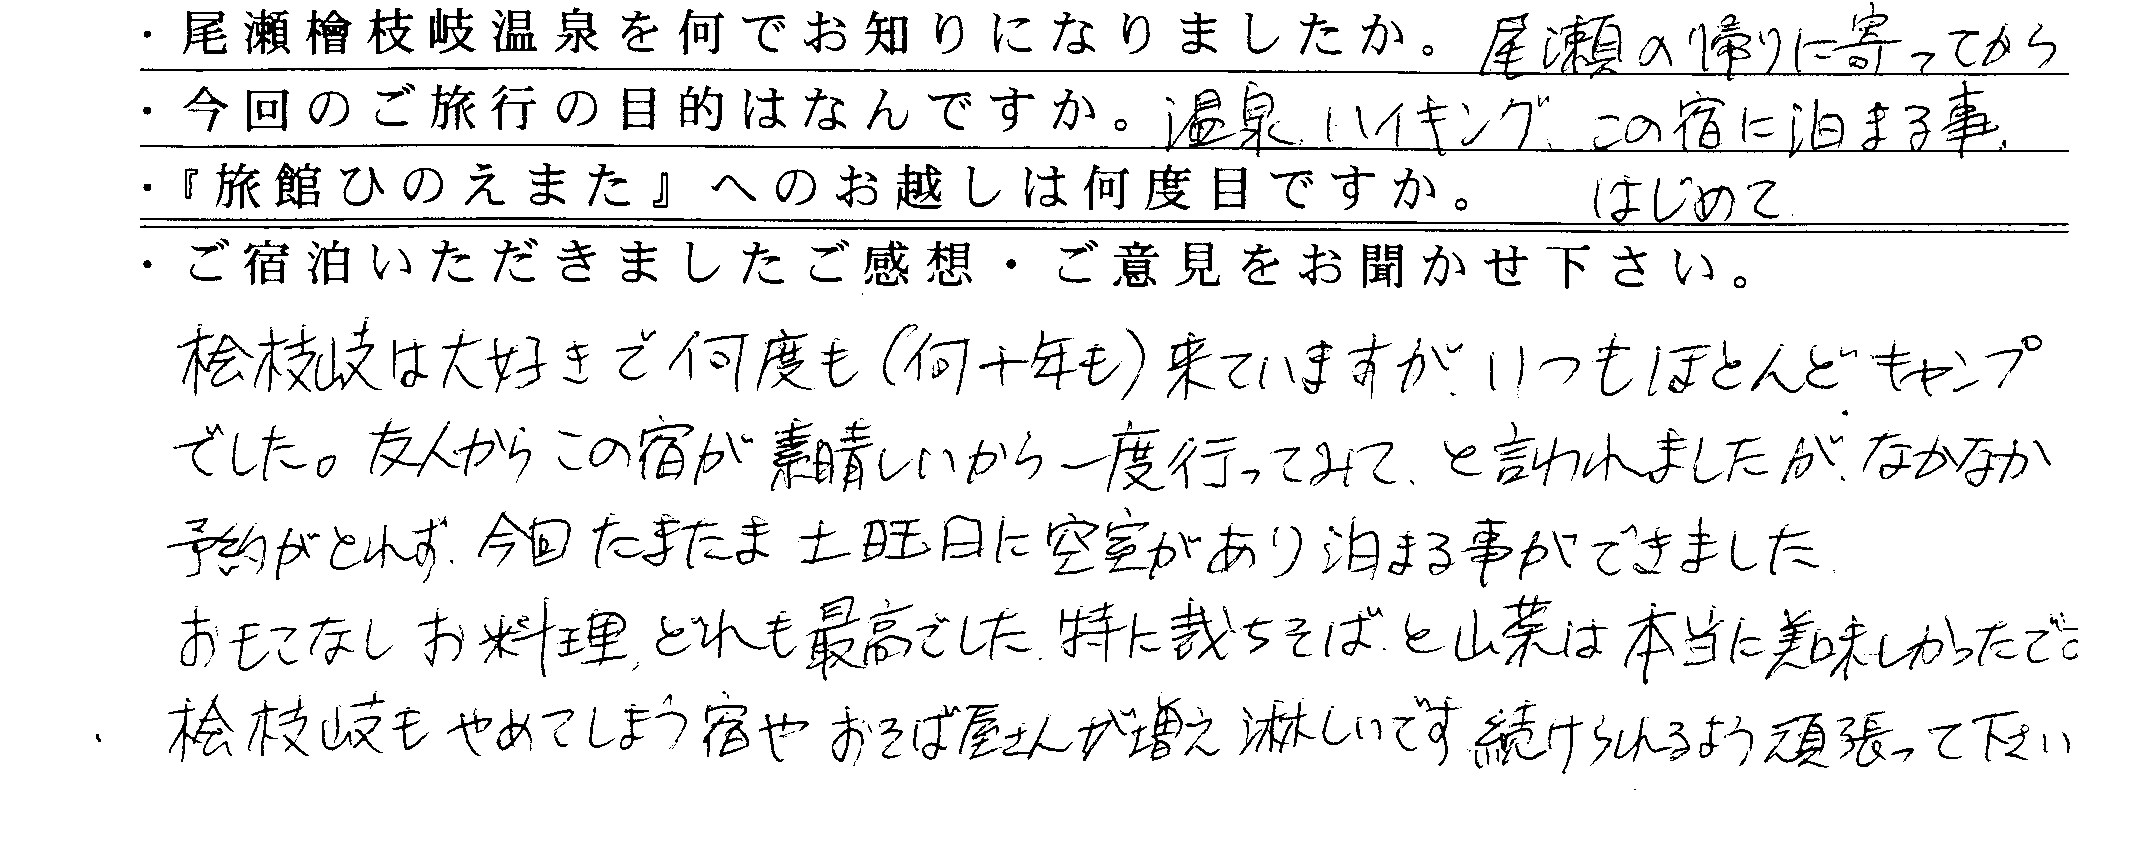 ・尾瀬檜枝岐温泉を何でお知りになりましたか。尾瀬の帰りに寄ってから
・今回のご旅行の目的はなんですか。温泉、ハイキング、この宿に泊まる事、
・『旅館ひのえまた』へのお越しは何度目ですか。 はじめて
・ご宿泊いただきましたご感想・ご意見をお聞かせ下さい。
桧枝岐は大好きで何度も(何十年も)来ていますが、いつもほとんどキャンプ
でした。友人からこの宿が素晴しいから一度行ってみて、と言われましたが、なかなか
予約がとれず、今回たまたま土曜日に空室があり泊まる事ができました
おもてなしお料理、どれも最高でした、特に裁ちそばと山菜は本当に美味しかったで。
桧枝岐もやめてしまう宿やおそば屋さんが増え淋しいです続けられるよう頑張って下さい